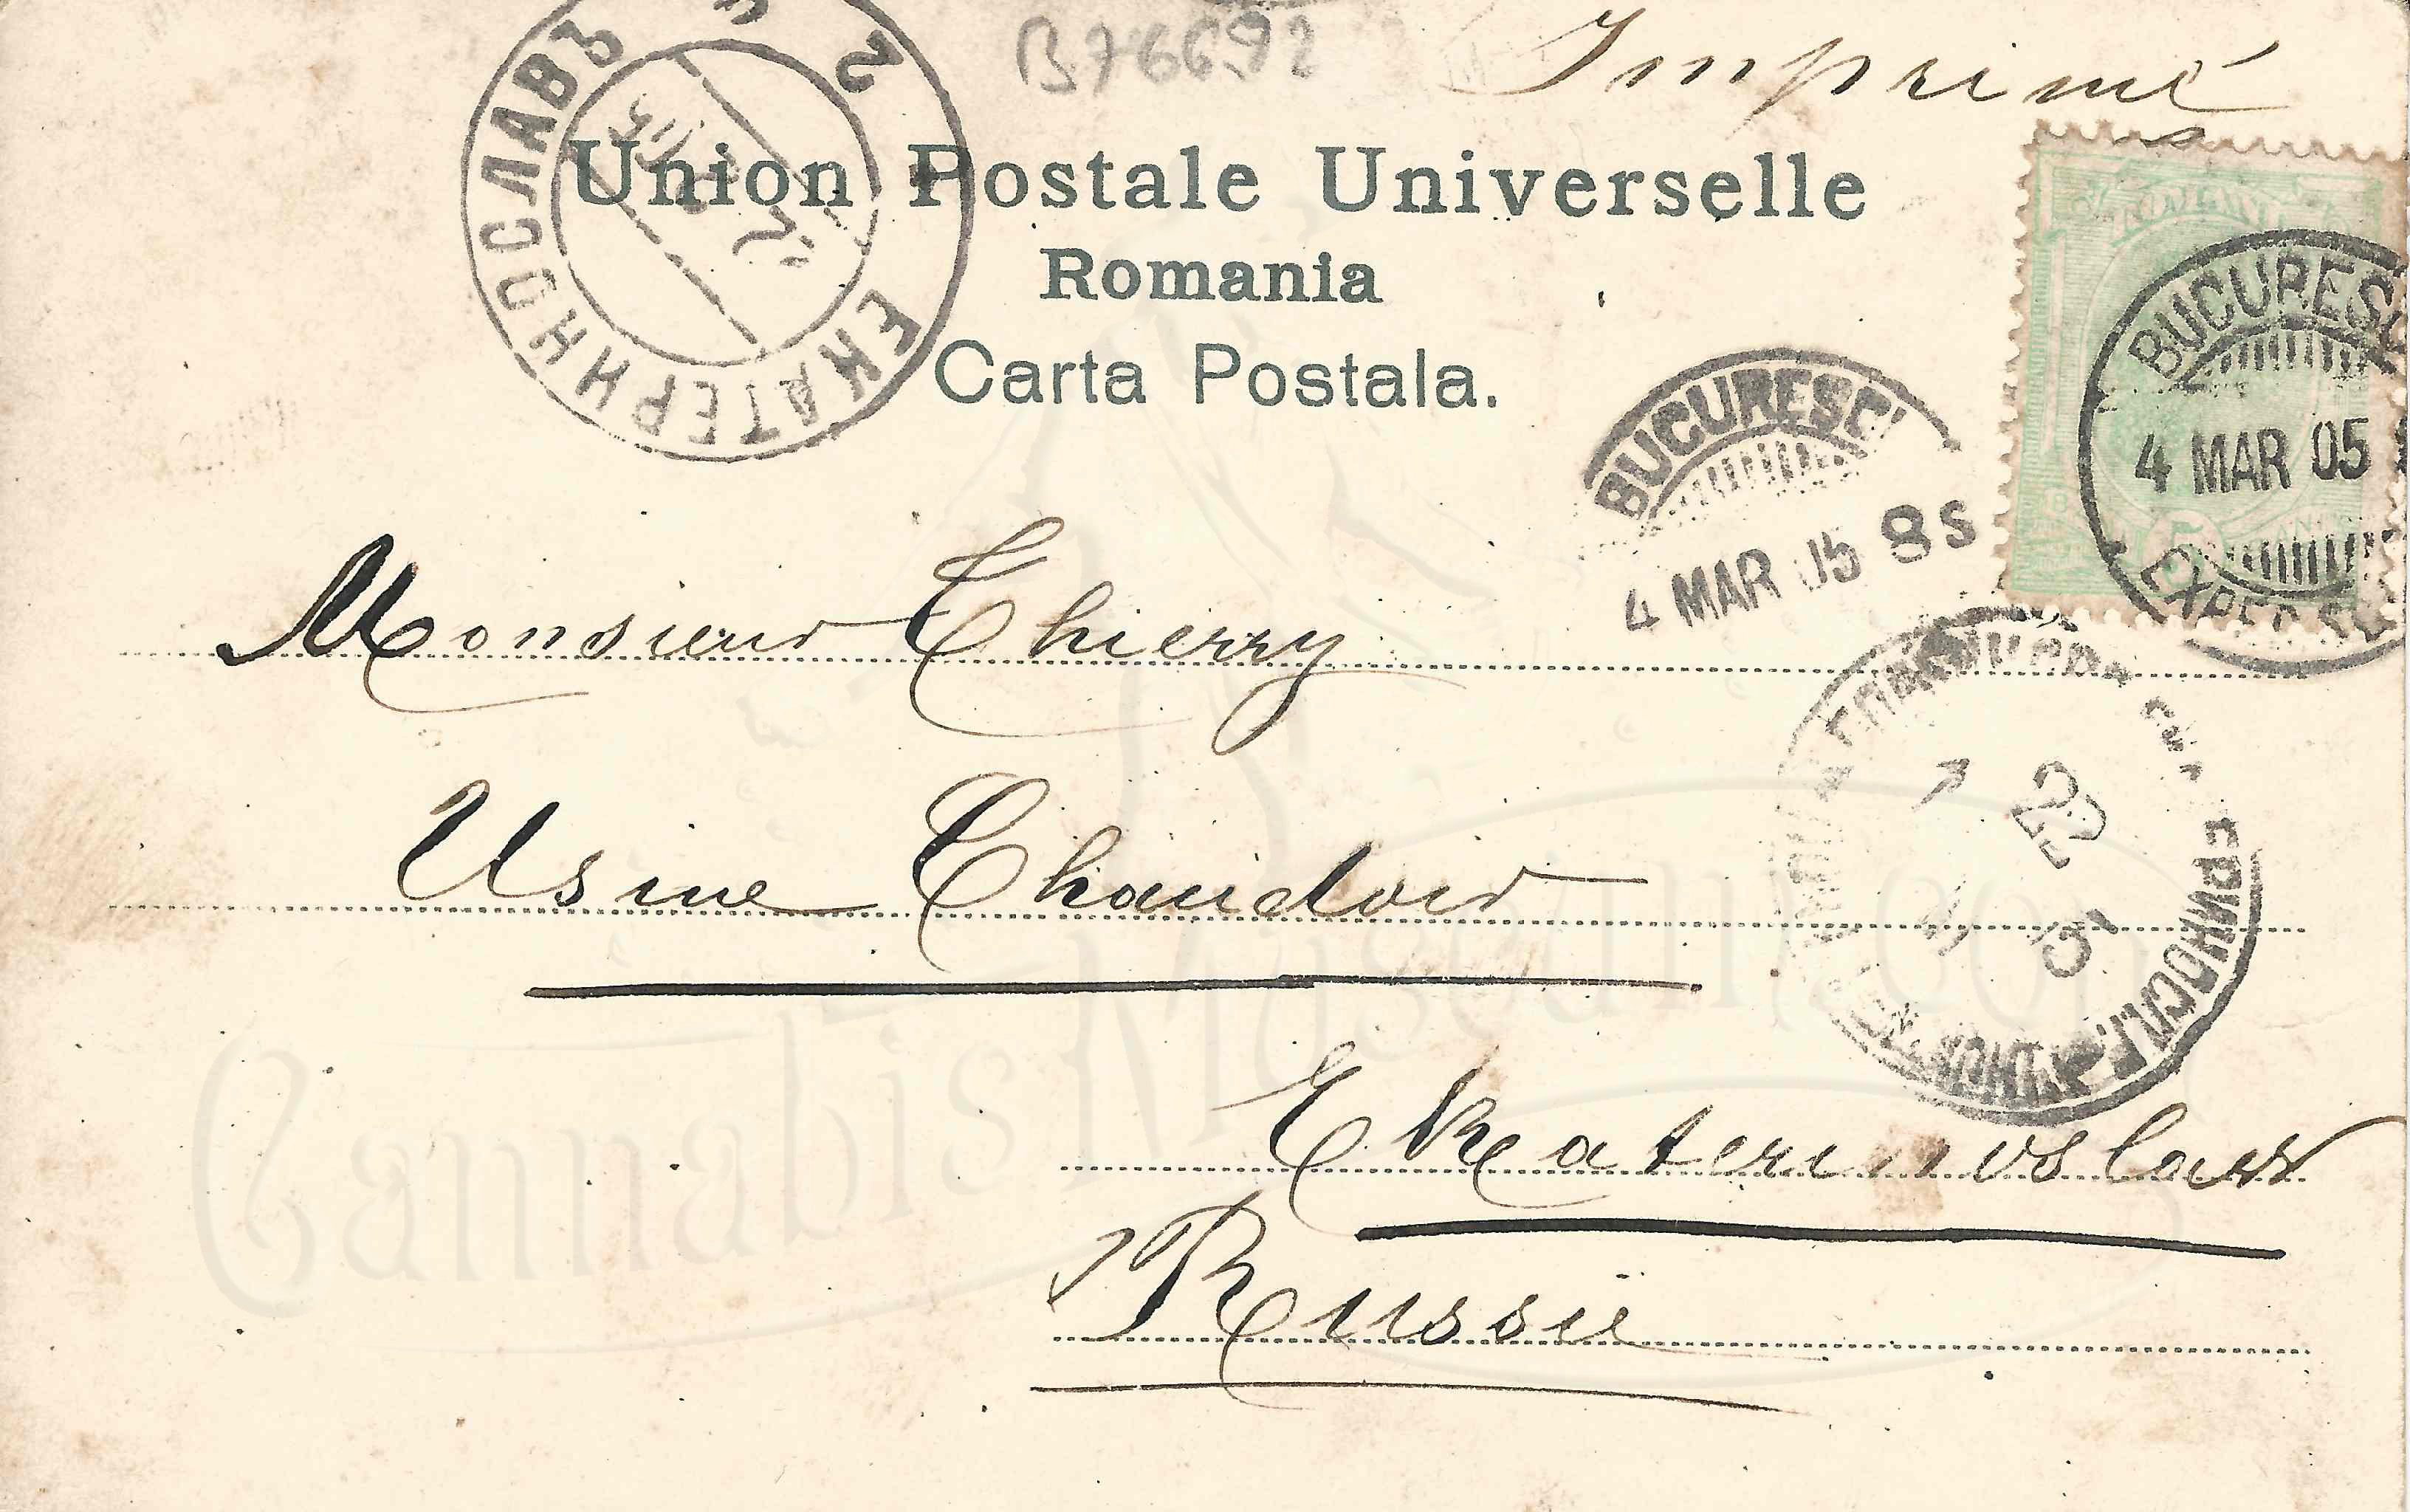 B76692
Imprimé
Union Postale Universelle
Romania
Carta Postala.
ЕКАТЕРИНОСЛАВЪ
2
BUCURESCI
4 MAR 05 8S
BUCURESCI
4 MAR 05
EXPED
5
Monsieur Thierry
Usine Chaudoir
Ekaterinoslaw
Russie
CannabisMuseum.com